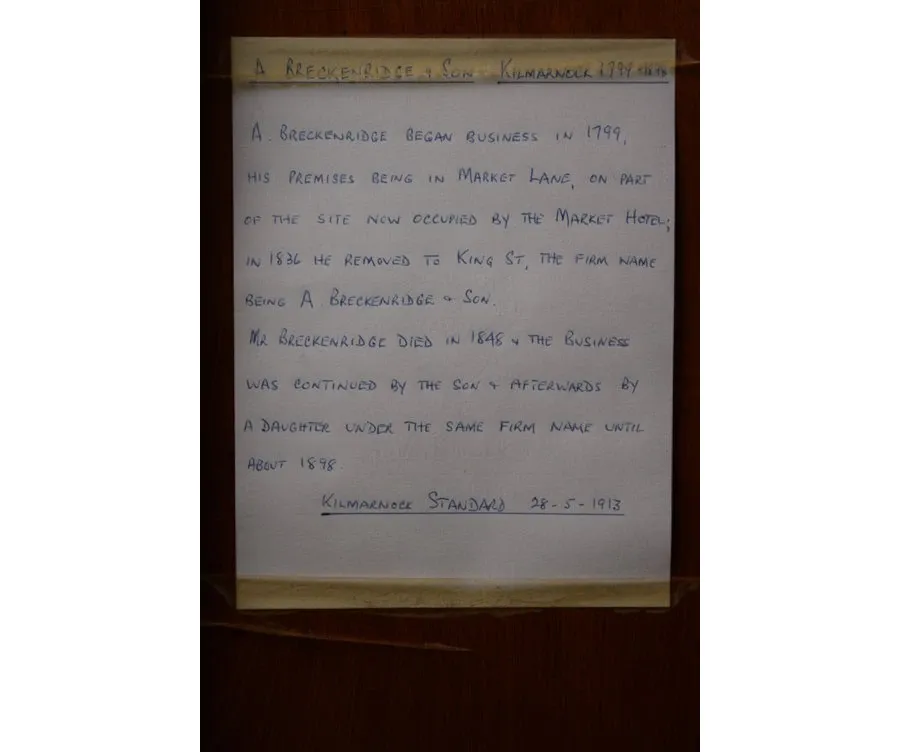 A BRECKENRIDGE & SON KILMARNOCK 1799
A. BRECKENRIDGE BEGAN BUSINESS IN 1799,
HIS PREMISES BEING IN MARKET LANE, ON PART
OF THE SITE NOW OCCUPIED BY THE MARKET HOTEL;
IN 1836 HE REMOVED TO KING ST, THE FIRM NAME
BEING A BRECKENRIDGE & SON.
MR BRECKENRIDGE DIED IN 1848 & THE BUSINESS
WAS CONTINUED BY THE SON & AFTERWARDS BY
A DAUGHTER UNDER THE SAME FIRM NAME UNTIL
ABOUT 1898.
KILMARNOCK STANDARD 28-5-1913